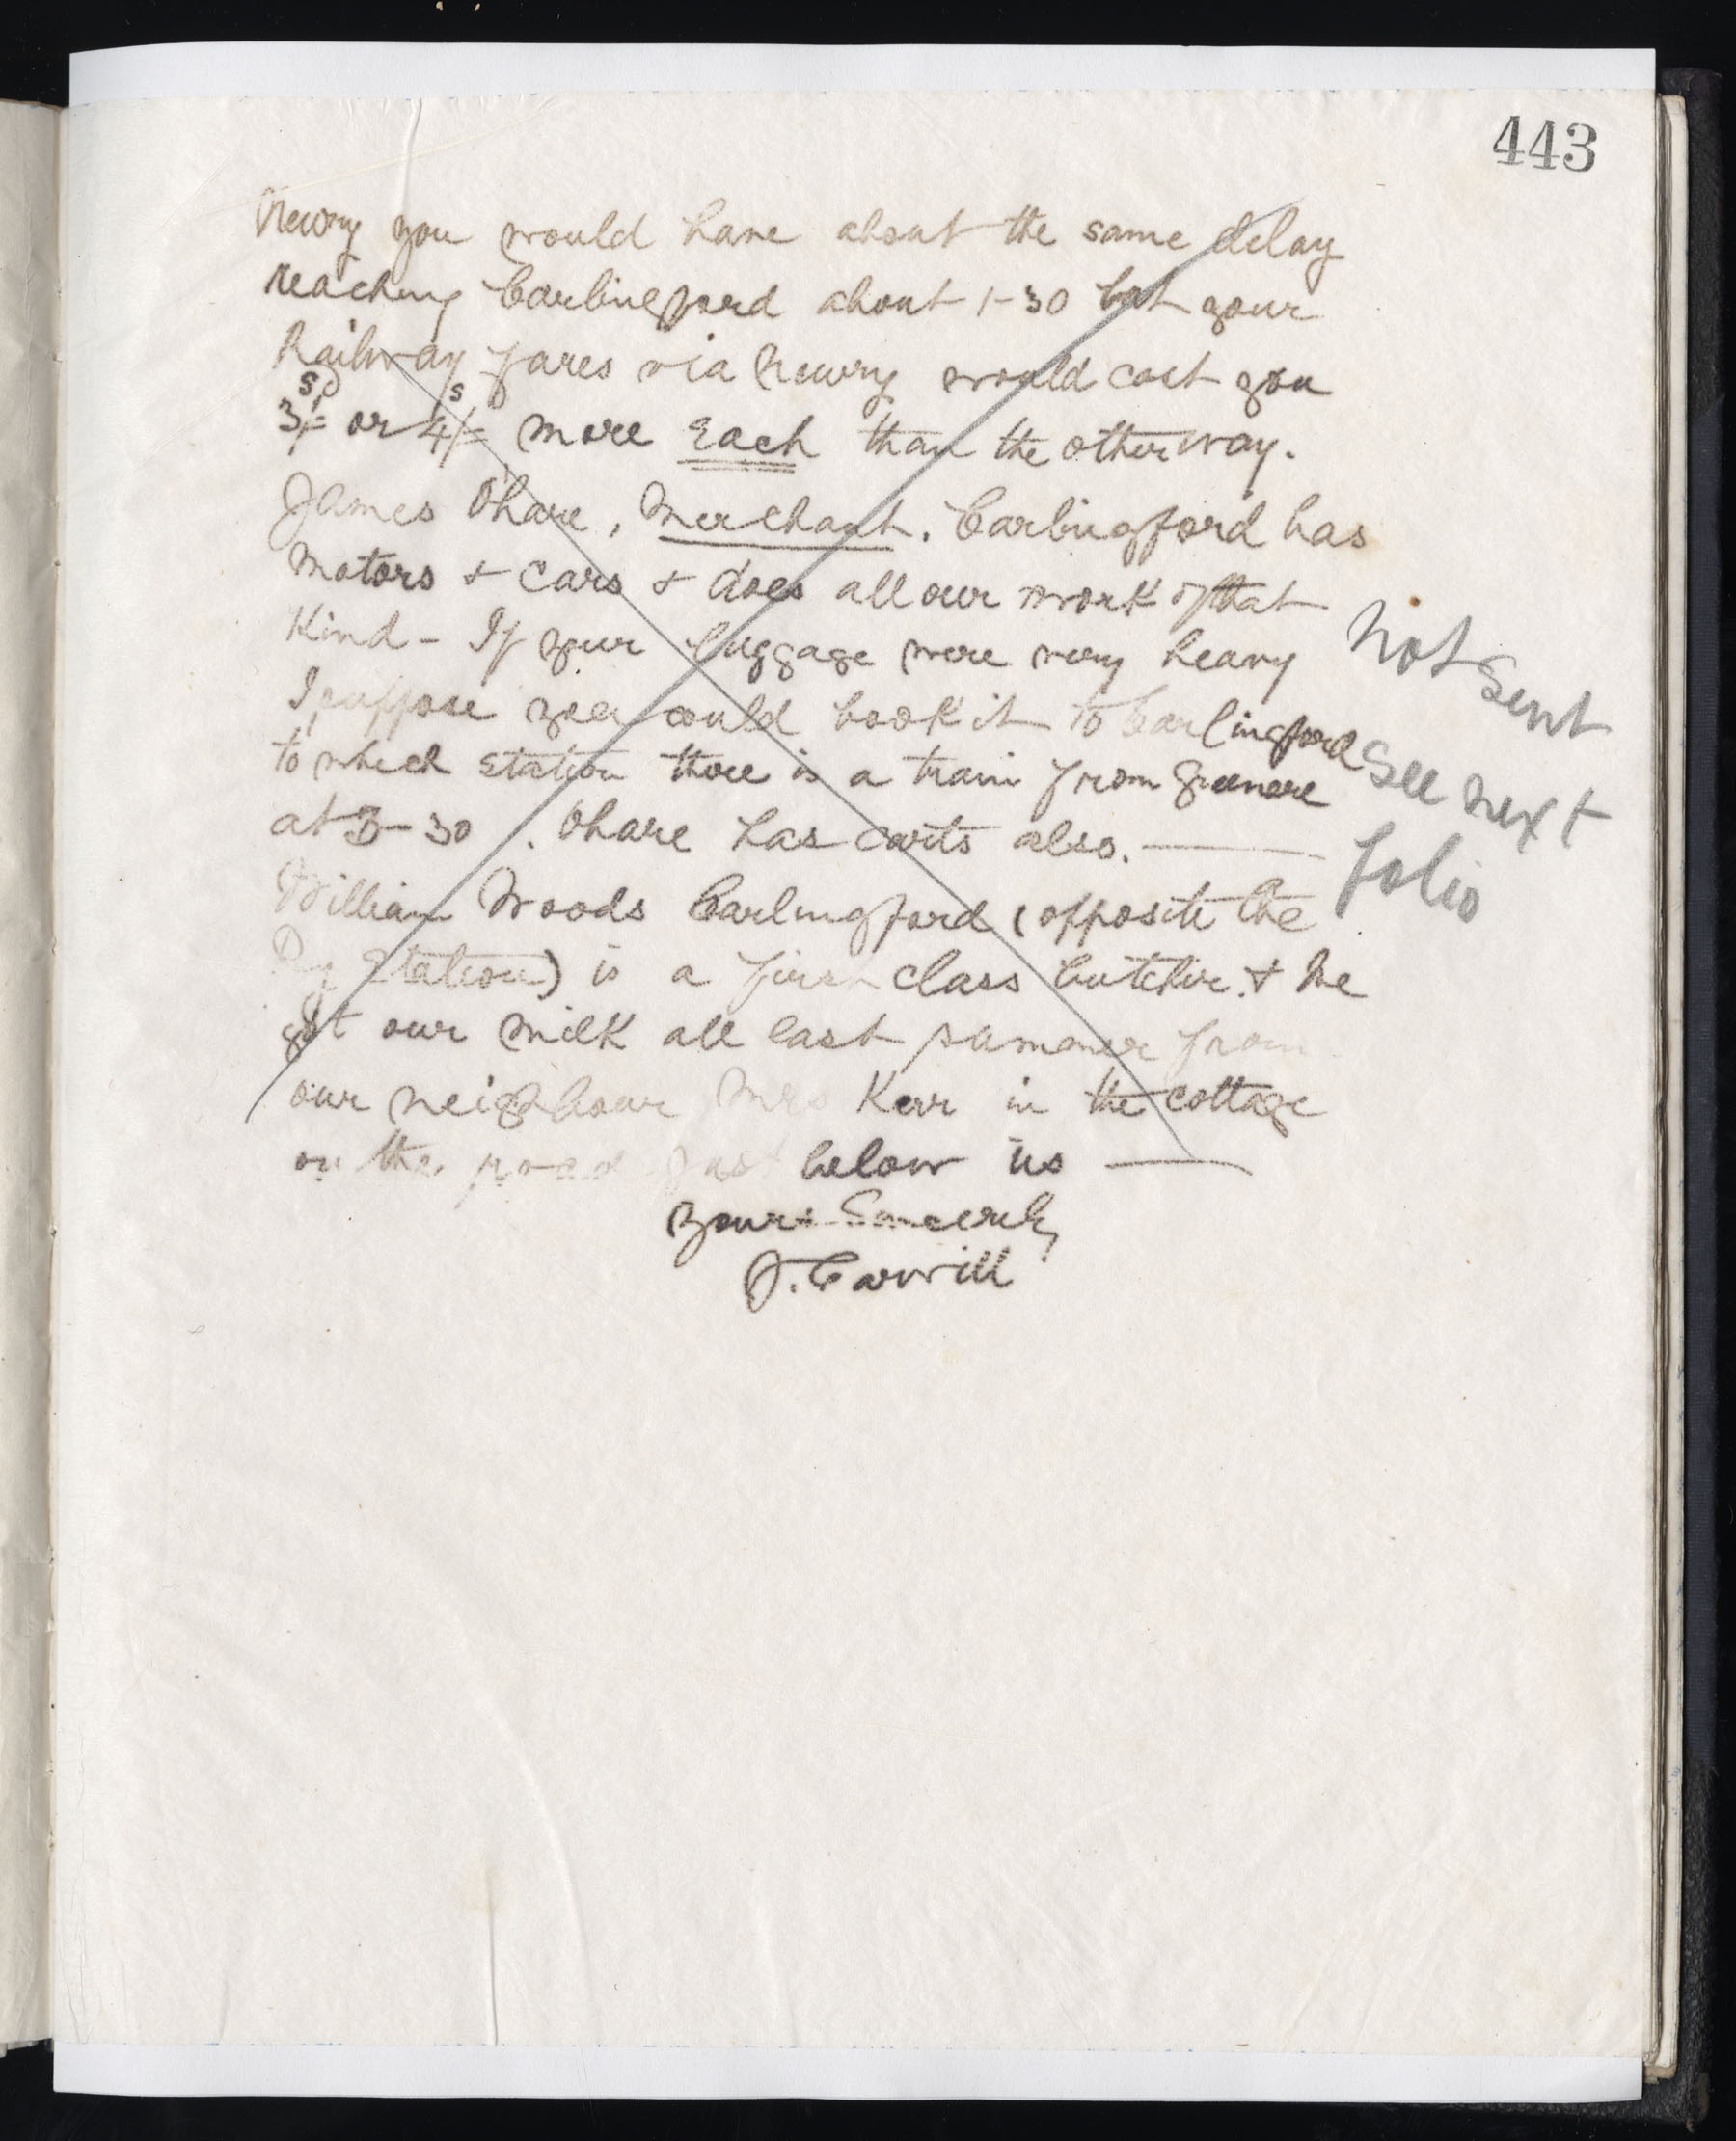 443
Newry you would have about the same delay
reaching Carlingford about 1-30 but your
Railway fares via Newry would cost you
3/= or 4/= more Each than the other way.
James Ohare, Merchant. Carlingford has
Motors & Cars & does all our work of that
Kind - If your luggage were very heavy
I suppose you could book it to Carlingford
to which station there is a train from Greenore
at 3-30. Ohare has carts also.
William Woods Carlingford (opposite the
Ry Station) is a first class butcher. & We
got our milk all last summer from
our neighbour Mrs Kerr in the cottage
on the road just below us
Yours Sincerely
J. Carvill
Not sent
See next
folio